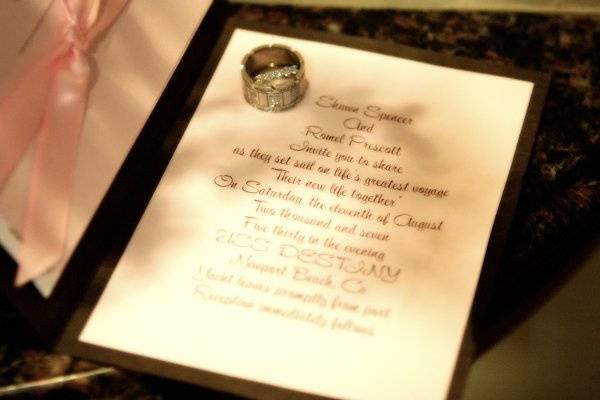 Shawn Spencer
And
Romel Prescott
Invite you to share
as they set sail on life's greatest voyage
"Their new life together"
On Saturday, the eleventh of August
Two thousand and seven
Five thirty in the evening
USS DESTINY
Newport Beach, Ca
Yacht leaves promptly from port
Reception immediately follows